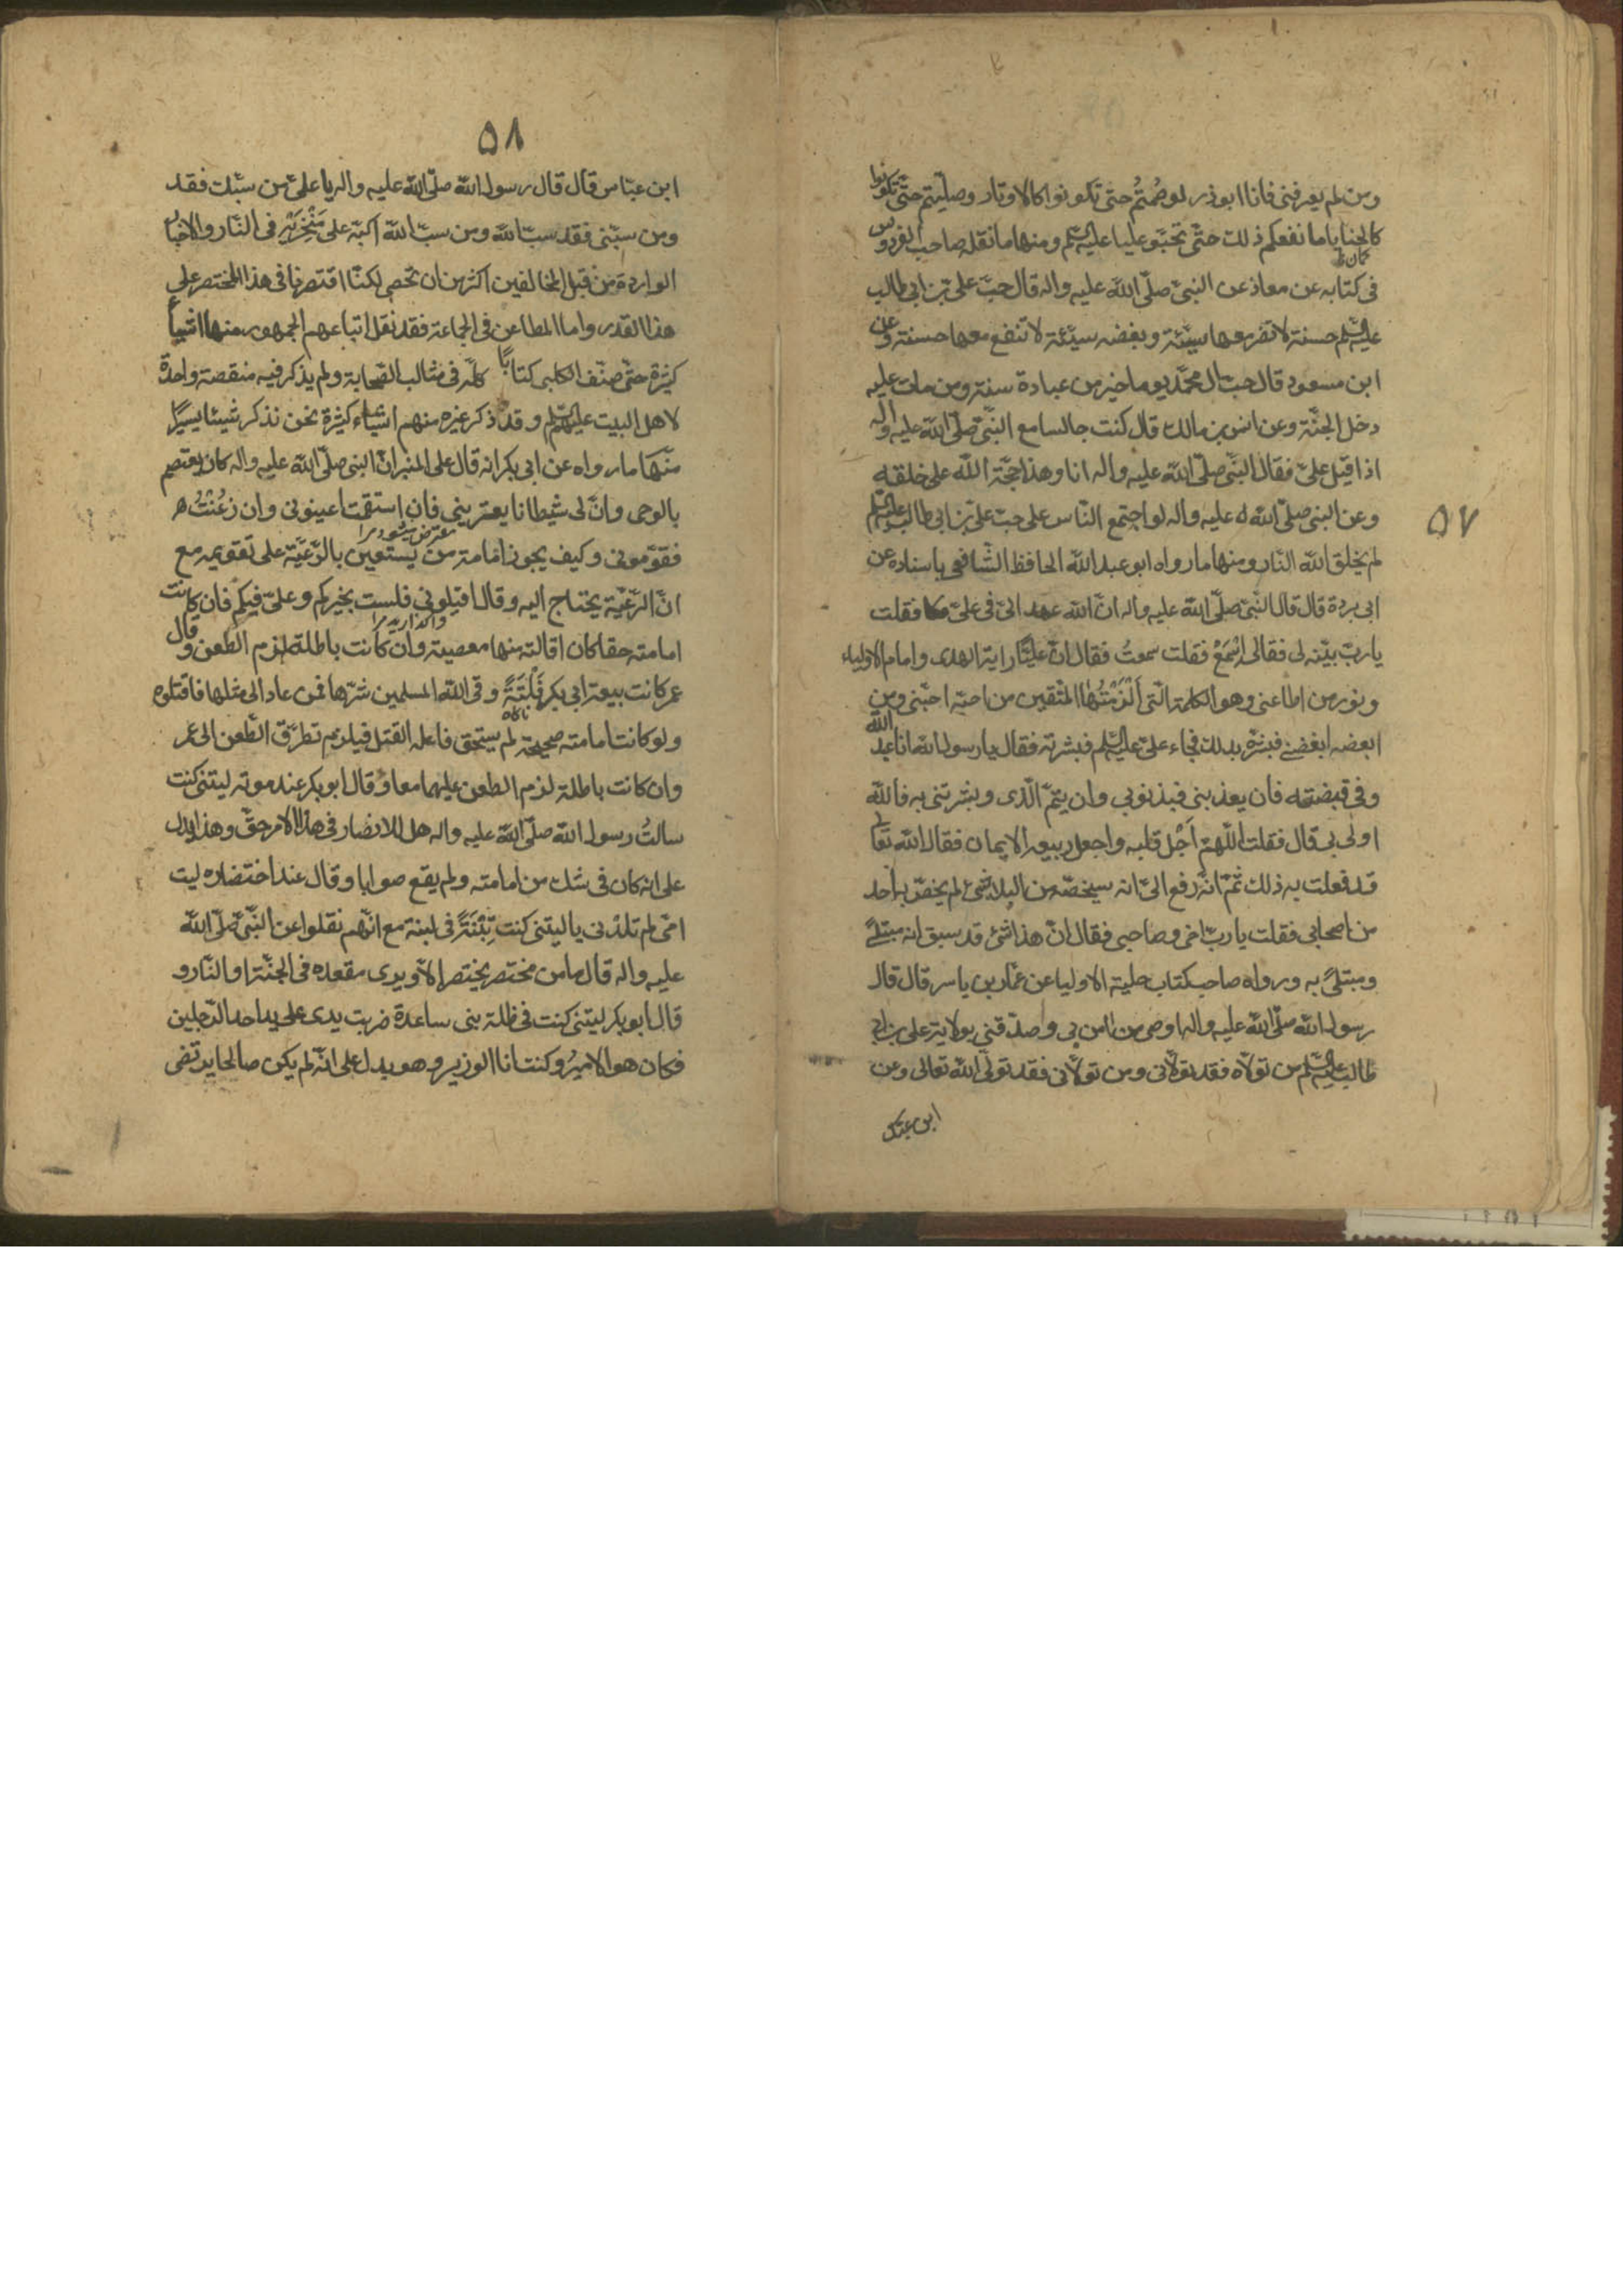 ٥٧
ومن لم يعرفنى فانا ابوذر لو صُمتُم حتى تكونوا كالاوتار وصلّيتم حتّى تكونوا
كالحنايا ما نفعكم ذلك حتّى تحبّو عليا عليه السّلم ومنها ما نقله صاحب الفردوس
كمان
فى كتابه عن معاذ عن النبىّ صلّى اللّه عليه واله قال حبّ على بن ابى طالب
عليه السّلم حسنة لا تضر معها سيّئة وبغضه سيّئة لا تنفع معها حسنة وعن
ابن مسعود قال حبّ ال محمّد يوما خير من عبادة سنة ومن مات عليه
دخل الجنّة وعن انس بن مالك قال كنت جالسا مع النّبىّ صلّى اللّه عليه واله
اذا قبل علىّ فقال النّبىّ صلّى اللّه عليه واله انا وهذا حجّة اللّه على خلقه
وعن النبى صلّى اللّه عليه واله لو اجتمع النّاس على حبّ على بن ابى طالب عليه السّلم
لم يخلق اللّه النّار ومنها ما رواه ابو عبد اللّه الحافظ الشّافعى باسناده عن
ابى بردة قال قال النّبىّ صلّى اللّه عليه واله انّ اللّه عهد الىّ فى علىّ فقلت
يا ربّ بيّنه لى فقال لى اِسْمَعْ فقلت سمعتُ فقال انّ عليّا راية الهدى وامام الاولياء
ونور من اطاعنى وهو الكلمة الّتى اَلْزَمْتُها المتّقين من احبّه احبّنى ومن
ابغضه ابغضنى فبشّره بذلك فجاء علىّ عليه السّلم فبشرته فقال يا رسول اللّه انا عبد اللّه
وفى قبضته فان يعذبنى فبذنوبى وان يتمّ الّذى وبشرتنى به فاللّه
اولى بى قال فقلت اللّهمّ اَجْل قلبه واجعل ربيعه الايمان فقال اللّه تعالى
قد فعلت به ذلك ثمّ انّه رفع الىّ انه سيخصّه من البلا شئ لم يخصّ به احد
من اصحابى فقلت يا ربّ اخى وصاحبى فقال انّ هذا شئ قد سبق انه مبتلىً
ومبتلىً به ورواه صاحب كتاب حلية الاوليا عن عمّار بن ياسر قال قال
رسول اللّه صلّى اللّه عليه واله اوصى من امن بى وصدّقنى بولاية على بن ابى
طالب عليه السّلم من تولّاه فقد تولّانى ومن تولّانى فقد تولّى اللّه تعالى وعن
٥٨
ابن عبّاس قال قال رسول اللّه صلّى اللّه عليه واله يا علىّ من سبّك فقد
ومن سبّنى فقد سبّ اللّه ومن سبّ اللّه اكبّه على مَنْخِرَيْه فى النّار والاخبار
الواردة من قبل المخالفين اكثر من ان تحصى لكنّا اقتصرنا فى هذا المختصر على
هذا القدر واما المطاعن فى الجماعة فقد نقل اتباعهم الجمهور منها اشياء
كثيرة حتّى صنّف الكلبى كتابًا كلّه فى مثالب الصّحابة ولم يذكر فيه منقصة واحدة
لاهل البيت عليهم السّلم وقد ذكر غيره منهم اشياء كثيرة نحن نذكر شيئا يسيرا
منها ما رواه عن ابى بكر انه قال على المنبر انّ النبى صلّى اللّه عليه واله كان يعتصم
بالوحى وانّ لى شيطانا يعترينى فان استقمت اعينونى وان زغْتُ
معترض ميشود مرا
فقوّمونى وكيف يجوز امامة من يستعين بالرّعيّة على تقويمه مع
انّ الرّعيّة يحتاج اليه وقال اقيلونى فلست بخيركم وعلىّ فيكم فان كانت
واگذاريد مرا
امامته حقا كان اقالته منها معصية وان كانت باطلة لزم الطعن وقال
عمر كانت بيعة ابى بكر فَلْتَةً وقى اللّه المسلمين شرّها فمن عاد الى مثلها فاقتلوه
ناگاه
ولو كانت امامته صحيحة لم يستحق فاعله القتل فيلزم تطرّق الطّعن الى عمر
وان كانت باطلة لزم الطعن عليهما معا وقال ابو بكر عند موته ليتنى كنت
سالتُ رسول اللّه صلّى اللّه عليه واله هل للانصار فى هذا الامر حقّ وهذا يدل
على انه كان فى شك من امامته ولم يقع صوابا وقال عند احتضاره ليت
امّى لم تلدنى يا ليتنى كنت تِبْنَةً فى لبنة مع انّهم نقلوا عن النّبىّ صلّى اللّه
عليه واله قال ما من محتضر يحتضر الّا ويرى مقعده فى الجنّة او النّار و
قال ابو بكر ليتنى كنت فى ظلة بنى ساعدة ضربت يدى على يد احد الرّجلين
فكان هو الاميرُ وكنت انا الوزير وهو يدل على انّه لم يكن صالحا يرتضى